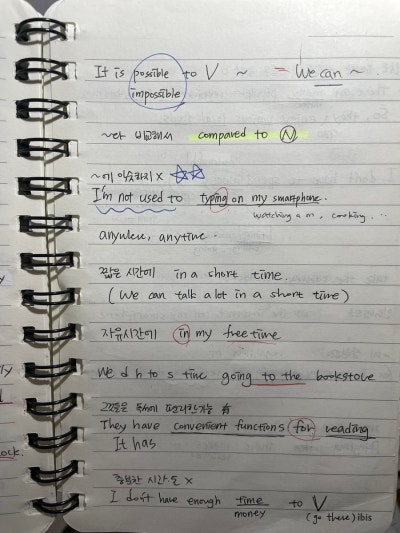 It is possible to V ~ = We can ~
impossible
~와 비교해서 compared to N
~에 익숙하지 X ☆☆
I'm not used to typing on my smartphone.
watching a m, cooking...
anywhere, anytime.
짧은 시간에 in a short time.
(We can talk a lot in a short time)
자유시간에 in my free time
We d h to s time going to the bookstore
그것들은 독서에 편리한 기능 有
They have convenient functions for reading
It has
충분한 시간 X
I don't have enough time to V
money (go there)
ock.